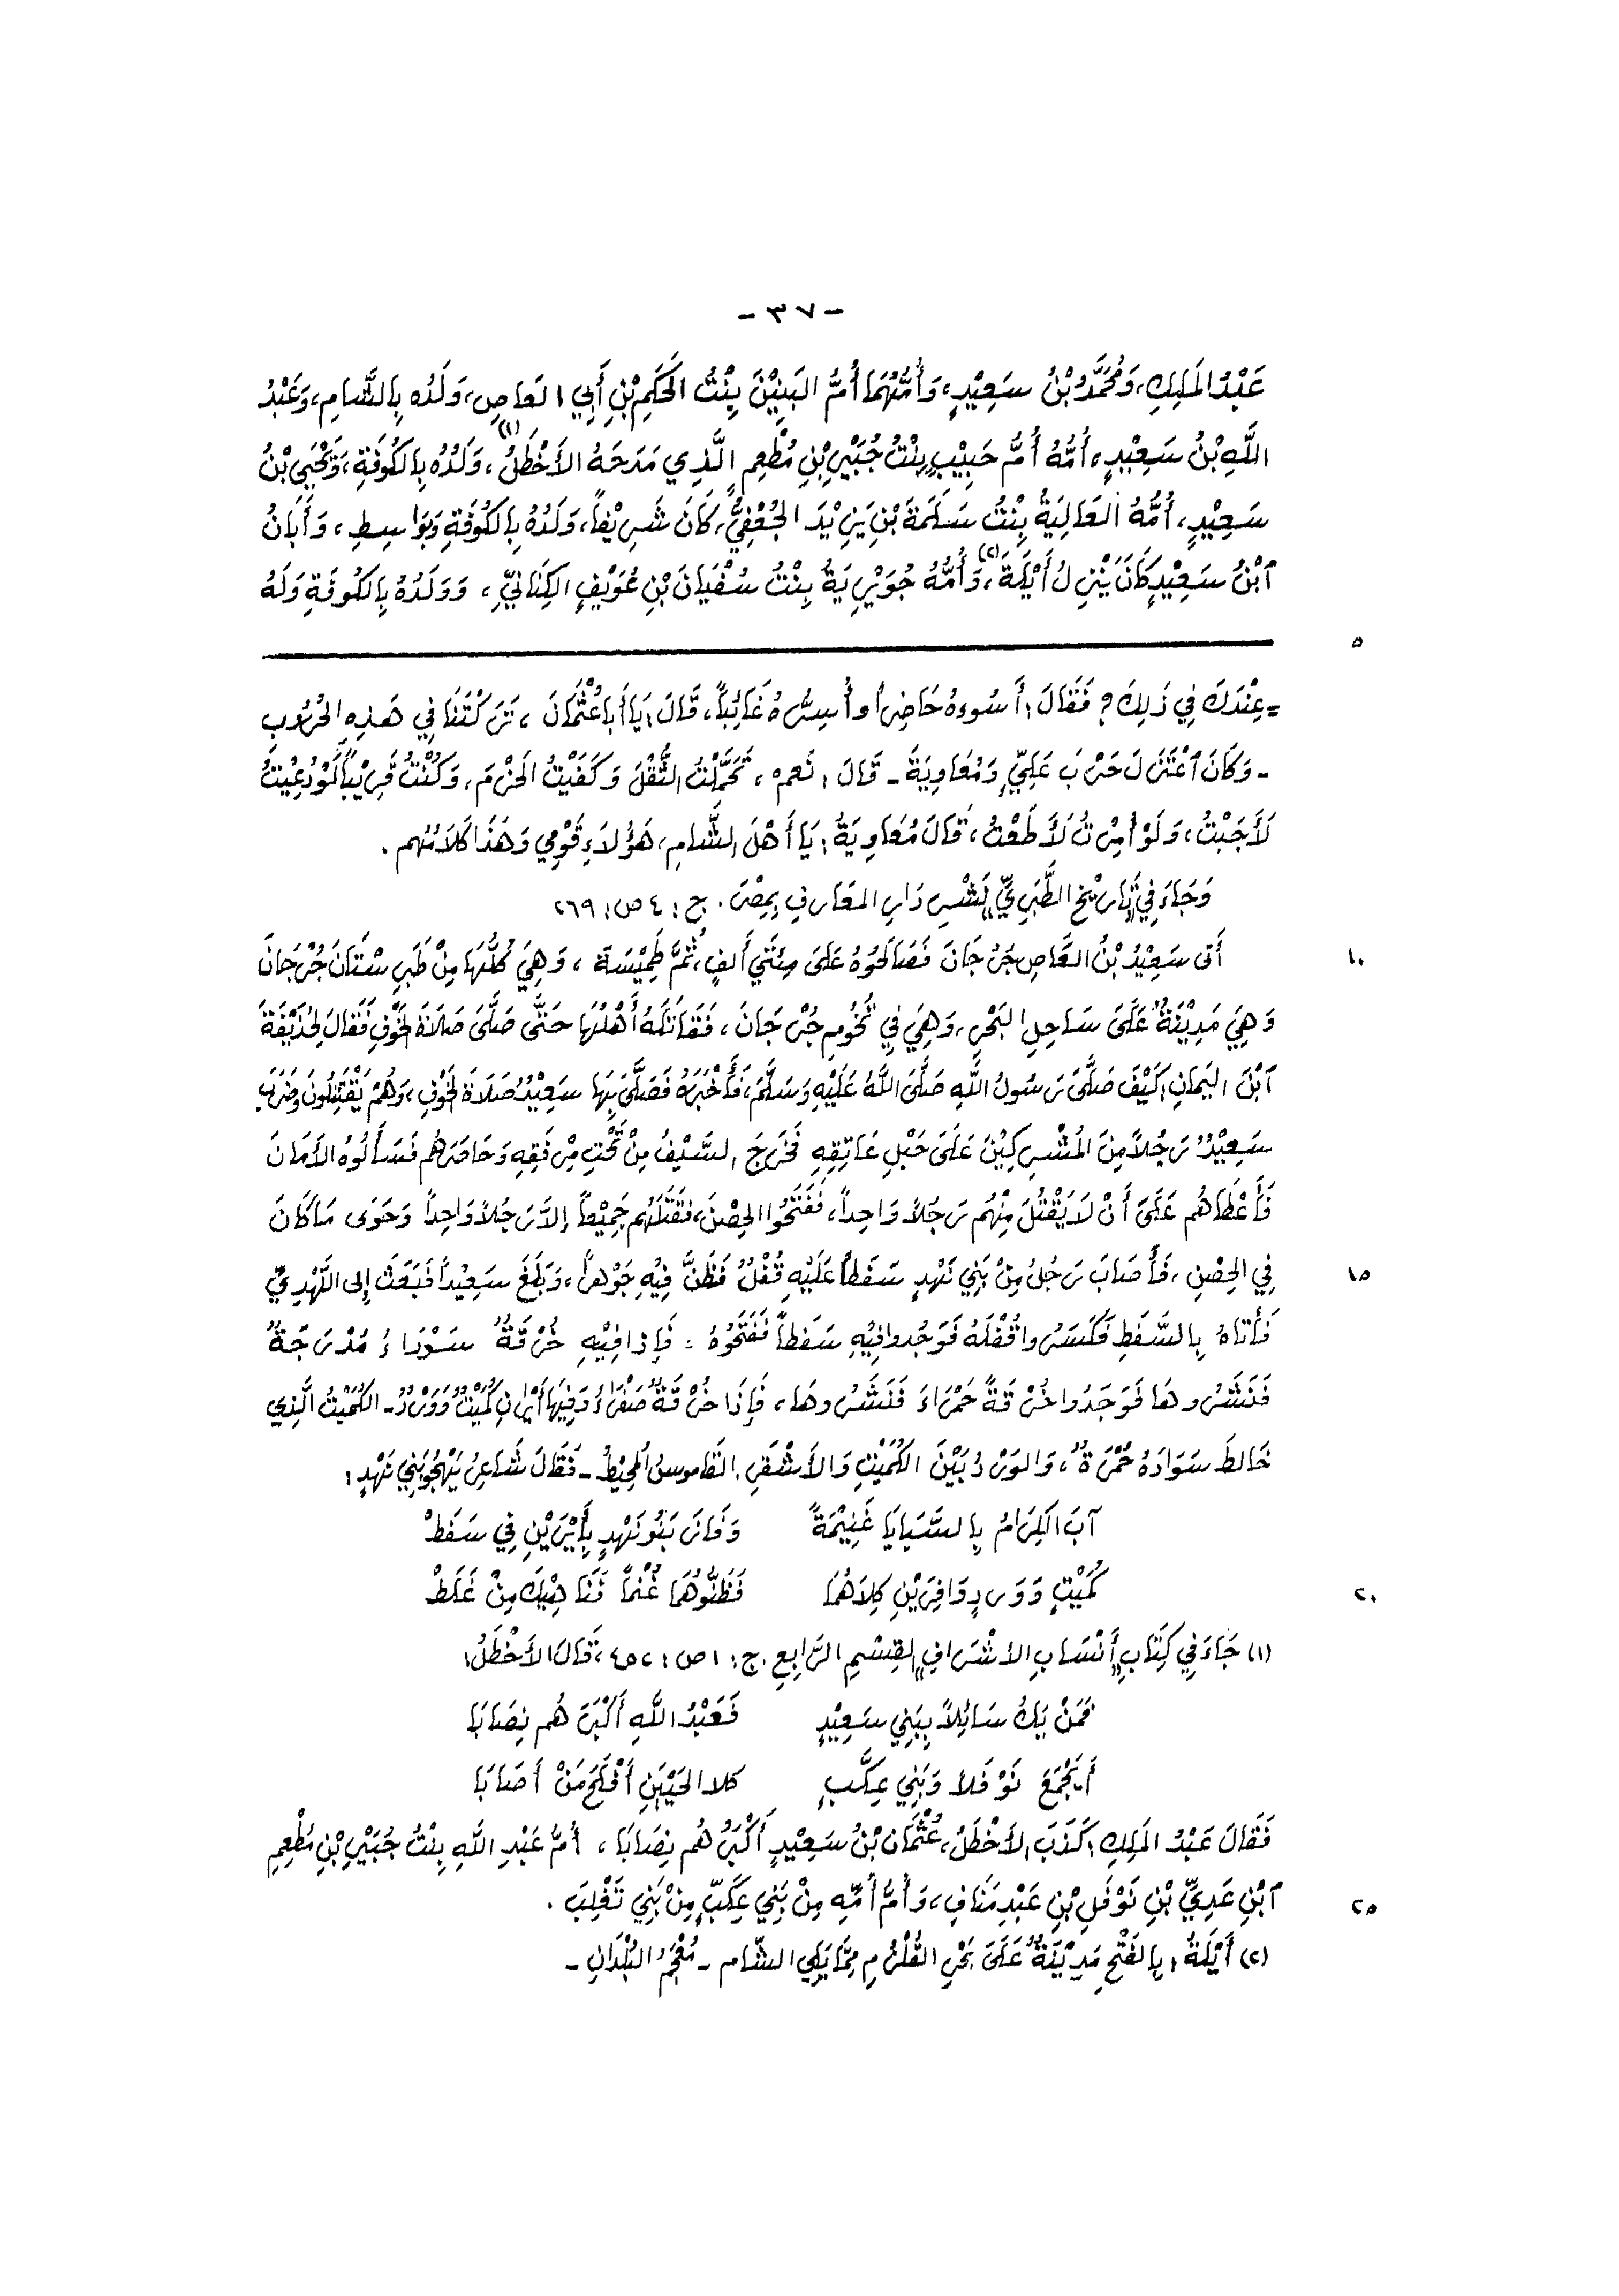 - ٣٧ -
عَبْدُ المَلِكِ، وَمُحَمَّدُ بْنُ سَعِيْدٍ، وَأُمُّهُمَا أُمُّ البَنِيْنَ بِنْتُ الحَكَمِ بْنِ أَبِي العَاصِ، وَلَدُه بِالشَّامِ، وَعَبْدُ
اللَّهِ بْنُ سَعِيْدٍ، أُمُّهُ أُمُّ حَبِيْبٍ بِنْتُ جُبَيْرِ بْنِ مُطْعِمٍ الَّذِي مَدَحَهُ الأَخْطَلُ(١)، وَلَدُهُ بِالكُوفَةِ، وَيَحْيَى بْنُ
سَعِيْدٍ، أُمُّهُ العَالِيَةُ بِنْتُ سَلَمَةَ بْنِ يَزِيْدَ الجُعْفِيُّ، كَانَ شَرِيْفاً، وَلَدُهُ بِالكُوفَةِ وَبِوَاسِطٍ، وَأَبَانُ
ٱبْنُ سَعِيْدٍ كَانَ يَنْزِلُ أَيْلَةَ(٢)، وَأُمُّهُ جُوَيْرِيَةُ بِنْتُ سُفْيَانَ بْنِ عُوَيْفٍ الكِنَانِيِّ، وَوَلَدُهُ بِالكُوفَةِ وَلَهُ
٥
= عِنْدَكَ فِي ذَلِكَ؟ فَقَالَ: أَسُوءهُ حَاضِراً وأُسِرُّهُ غَائِباً، قَالَ: يَا أَبَا عُثْمَانَ، تَرَكْتَنَا فِي هَذِهِ الحُرُوبِ
- وَكَانَ ٱعْتَزَلَ حَرْبَ عَلِيٍّ وَمُعَاوِيَةَ - قَالَ: نَعَم، تَحَمَّلْتُ الثُّقْلَ وَكَفَيْتُ الحَزْمَ، وَكُنْتُ قَرِيْباً لَوْ دُعِيْتُ
لَأَجَبْتُ، وَلَوْ أُمِرْتُ لَأَطَعْتُ، قَالَ مُعَاوِيَةُ: يَا أَهْلَ الشَّامِ، هَؤُلَاءِ قَوْمِي وَهَذَا كَلَامُهُم.
وَجَاءَ فِي تَارِيْخِ الطَّبَرِيِّ نَشْرِ دَارِ المَعَارِفِ بِمِصْرَ. ج: ٤ ص: ٢٦٩
١٠ أَتَى سَعِيْدُ بْنُ العَاصِ جُرْجَانَ فَصَالَحُوهُ عَلَى مِئَتَي أَلفٍ، ثُمَّ طَمِيْسَةَ، وَهِيَ كُلُّهَا مِنْ طَبَرِسْتَانَ جُرْجَانَ
وَهِيَ مَدِيْنَةٌ عَلَى سَاحِلِ البَحْرِ، وَهِيَ فِي تُخُومِ جُرْجَانَ، فَقَاتَلَهُ أَهْلُهَا حَتَّى صَلَّى صَلَاةَ الخَوْفِ فَقَالَ لِحُذَيْفَةَ
ٱبْنِ اليَمَانِ: كَيْفَ صَلَّى رَسُولُ اللَّهِ صَلَّى اللَّهُ عَلَيْهِ وَسَلَّمَ، فَأَخْبَرَهُ فَصَلَّى بِهَا سَعِيْدُ صَلَاةَ الخَوْفِ، وَهُمْ يَقْتَتِلُونَ وَضَرَبَ
سَعِيْدٌ رَجُلاً مِنَ المُشْرِكِيْنَ عَلَى حَبْلِ عَاتِقِهِ فَخَرَجَ السَّيْفُ مِنْ تَحْتِ مِرْفَقِهِ وَحَاصَرَهُم فَسَأَلُوهُ الأَمَانَ
فَأَعْطَاهُم عَلَى أَنْ لَا يَقْتُلَ مِنْهُم رَجُلاً وَاحِداً، فَفَتَحُوا الحِصْنَ، فَقَتَلَهُم جَمِيْعاً إلاَّ رَجُلاً وَاحِداً وَحَوَى مَا كَانَ
١٥ فِي الحِصْنِ، فَأَصَابَ رَجُلٌ مِنْ بَنِي نَهْدٍ سَفَطاً عَلَيْهِ قُفْلٌ فَظَنَّ فِيْهِ جَوْهراً، وَبَلَغَ سَعِيْداً فَبَعَثَ إِلى النَّهْدِيِّ
فَأَتَاهُ بِالسَّفَطِ فَكَسَرُوا قُفْلَهُ فَوَجَدُوا فِيْهِ سَفَطاً فَفَتَحُوهُ: فَإِذَا فِيْهِ خُرْقَةٌ سَوْدَاءُ مُدْرَجَةٌ
فَنَشَرُوهَا فَوَجَدُوا خُرْقَةً حَمْرَاءَ فَنَشَرُوهَا، فَإِذَا خُرْقَةٌ صَفْرَاءُ وَفِيْهَا أَيْرَانِ كُمَيْتٌ وَوَرْدٌ- الكُمَيْتُ الَّذِي
خَالطَ سَوَادَهُ حُمْرَةٌ، وَالوَرْدُ بَيْنَ الكُمَيْتِ وَالأَشْقَرِ. القَامُوسُ المُحِيْطُ - فَقَالَ شَاعِرٌ يَهْجُو بَنِي نَهْدٍ:
آبَ الكِرَامُ بِالسَّبَايَا غَنِيْمَةً وَفَازَ بَنُو نَهْدٍ بِأَيْرَيْنِ فِي سَفَطْ
٢٠ كُمَيْتٍ وَوَرْدٍ وَافِرَيْنِ كِلَاهُمَا فَظَنُّوهُمَا غُنْماً فَنَاهِيْكَ مِنْ غَلَطْ
(١) جَاءَ فِي كِتَابِ أَنْسَابِ الأَشْرَافِ القِسْمِ الرَّابِعِ. ج: ١ ص: ٤٥٢، قَالَ الأَخْطَلُ:
فَمَنْ يَكُ سَائِلاً بِبَنِي سَعِيْدٍ فَعَبْدُ اللَّهِ أَكْبَرُهُم نِصَابَا
أَيَجْمَعُ نَوْفَلاً وَبَنِي عِكَبٍّ كلا الحَيَّيْنِ أَفْلَحَ مَنْ أَصَابَا
فَقَالَ عَبْدُ المَلِكِ: كَذَبَ الأَخْطَلُ، عُثْمَانُ بْنُ سَعِيْدٍ أَكْبَرُهُم نِصَابَا، أُمُّ عَبْدِ اللَّهِ بِنْتُ جُبَيْرِ بْنِ مُطْعِمِ
٢٥ ٱبْنِ عَدِيِّ بْنِ نَوْفَلِ بْنِ عَبْدِ مَنَافٍ، وَأُمُّ أُمِّهِ مِنْ بَنِي عِكَبٍّ مِنْ بَنِي تَغْلِبَ.
(٢) أَيْلَةُ: بِالفَتْحِ مَدِيْنَةٌ عَلَى بَحْرِ القُلْزُمِ مِمَّا يَلِي الشَّام - مُعْجَمُ البُلْدَانِ -